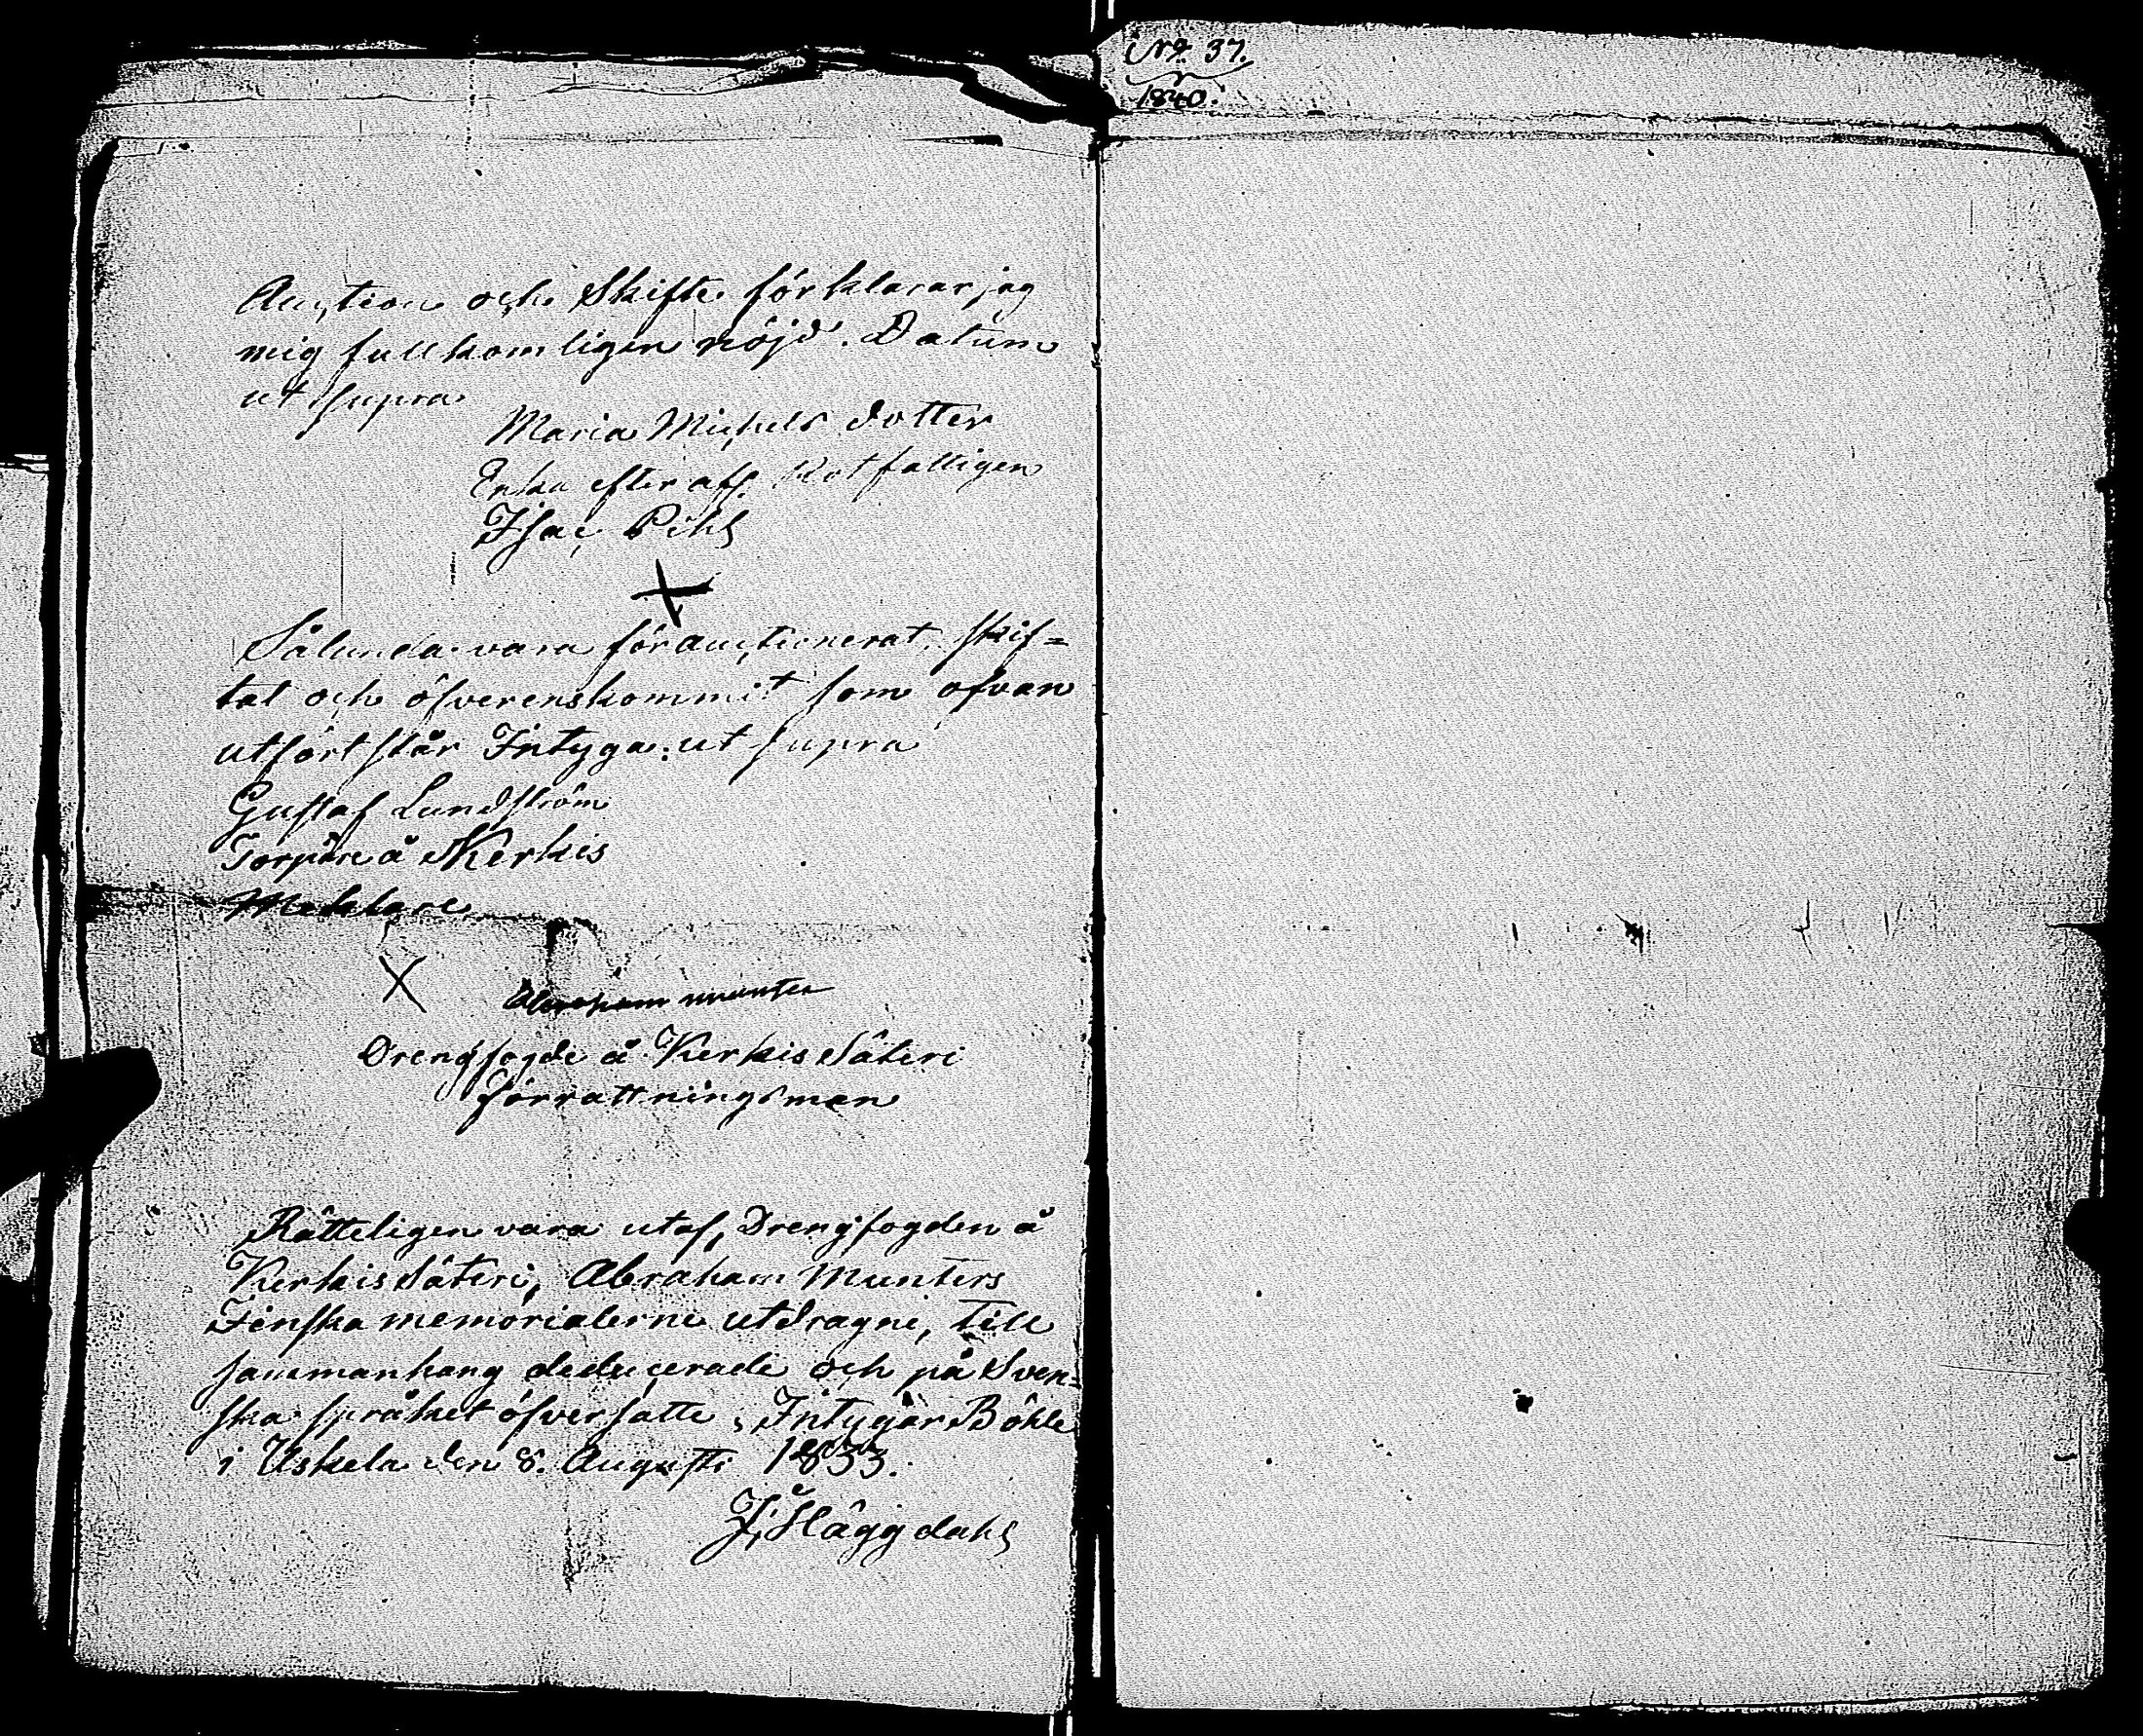 Auction och Skifte förklarar jag
mig fullkomligen nöjd. Datum
ut supra
Maria Michels dotter
Enka efter afl. Rotfattigen
Isac Pihl
Sålunda vara förauctionerat, skif=
tat och öfverenskommit som ofvan
utfört står Intyga: ut supra
Gustaf Lundström
Torpare å Kerkis
Meklare
Abraham munter
Drengfogde å Kerkis Säteri
förrättningsman
Rätteligen vara utaf, Drengfogden å
Kerkis Säteri, Abraham Munters
Finska memorialerne utdragne, till
sammanhang deducerade och på Sven=
ska språket öfversatte, Intygar Böhle
i Uskela den 8. Augusti 1833.
J. Häggdahl
No. 37.
1840.